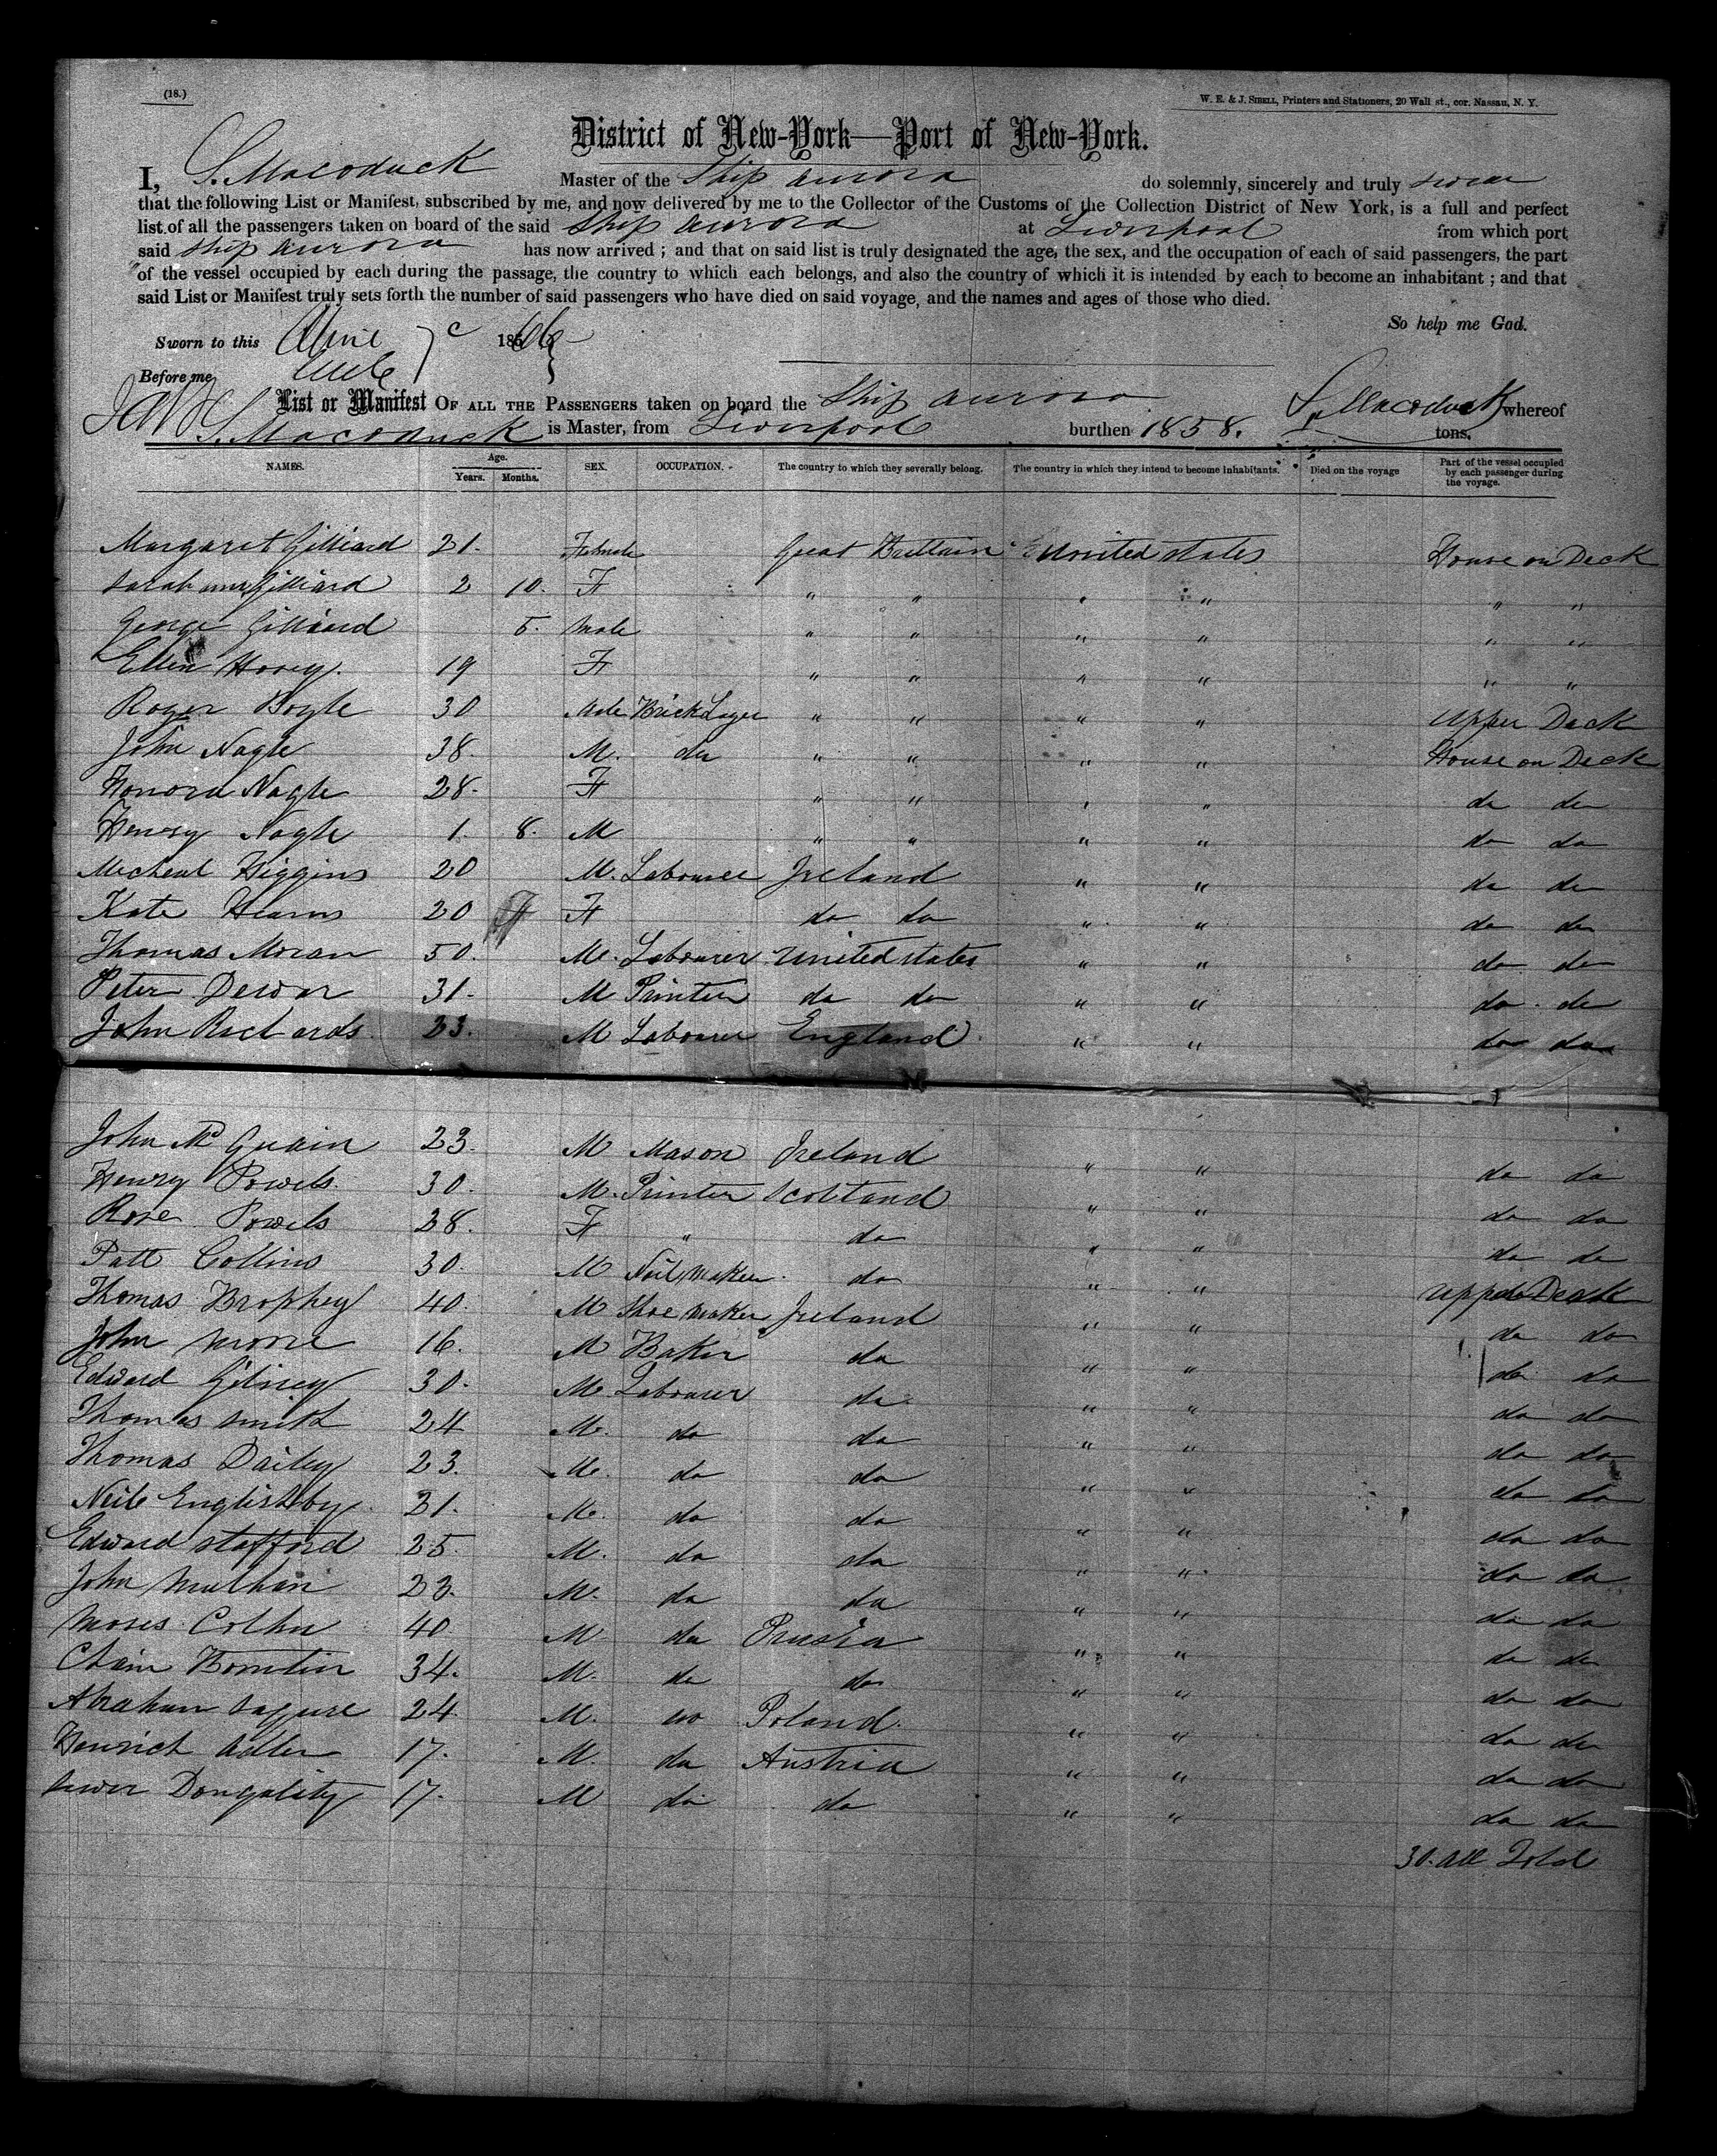 (18.)
W. E. & J. SIBELL, Printers and Stationers, 20 Wall st., cor. Nassau, N. Y.
District of New-York—Port of New-York.
I, S. Macoduck Master of the Ship aurora do solemnly, sincerely and truly swear
that the following List or Manifest, subscribed by me, and now delivered by me to the Collector of the Customs of the Collection District of New York, is a full and perfect
list of all the passengers taken on board of the said Ship aurora at Liverpool from which port
said Ship aurora has now arrived ; and that on said list is truly designated the age, the sex, and the occupation of each of said passengers, the part
of the vessel occupied by each during the passage, the country to which each belongs, and also the country of which it is intended by each to become an inhabitant ; and that
said List or Manifest truly sets forth the number of said passengers who have died on said voyage, and the names and ages of those who died.
So help me God.
Sworn to this 186
Before me
List or Manifest OF ALL THE PASSENGERS taken on board the Ship aurora S. Macoduck whereof
S. Macoduck is Master, from Liverpool burthen 1858. tons.
NAMES. Age. Years. Months. SEX. OCCUPATION. The country to which they severally belong. The country in which they intend to become inhabitants. Died on the voyage Part of the vessel occupied by each passenger during the voyage.
Margaret Gilliard 21. Female Great Brittain United states House on Deck
Sarah ann Gilliard 2 10. F " " " " " "
George Gilliard 5. Male " " " " " "
Ellen Hovey. 19 F " " " " " "
Roger Boyle 30 Male BrickLayer " " " " Upper Deck
John Nagle 38. M. do " " " " House on Deck
Honora Nagle 28. F " " " " do do
Henry Nagle 1. 8. M " " " " do do
Micheal Higgins 20 M. Labourer Ireland " " do do
Kate Hearns 20 F do do " " do do
Thomas Moran 50. M. Labourer United states " " do do
Peter Dewar 31. M Printer do do " " do do
John Richards 23. M Labourer England " " do do
John Mc Guain 23. M Mason Ireland " " do do
Henry Powels. 30. M. Printer Scotland " " do do
Rose Powels 28. F " do " " do do
Patt Collins 30. M Nail Maker do " " Upper Deck
Thomas Brophey 40. M Shoe maker Ireland " " do do
John Moore 16. M Baker do " " do do
Edward Gilney 30. M. Labourer do " " do do
Thomas Smith 24 M. do do " " do do
Thomas Dailey 23. M. do do " " do do
Neile Englishby 21. M. do do " " do do
Edward Stafford 25. M. do do " " do do
John Mulhan 23. M. do do " " do do
Moses 40. M do Prusia " " do do
Chaim 34. M. do do " " do do
Abraham 24. M. do Poland. " " do do
Henrich Adler 17. M. do Austria " " do do
17. M do do " " do do
30. all Told